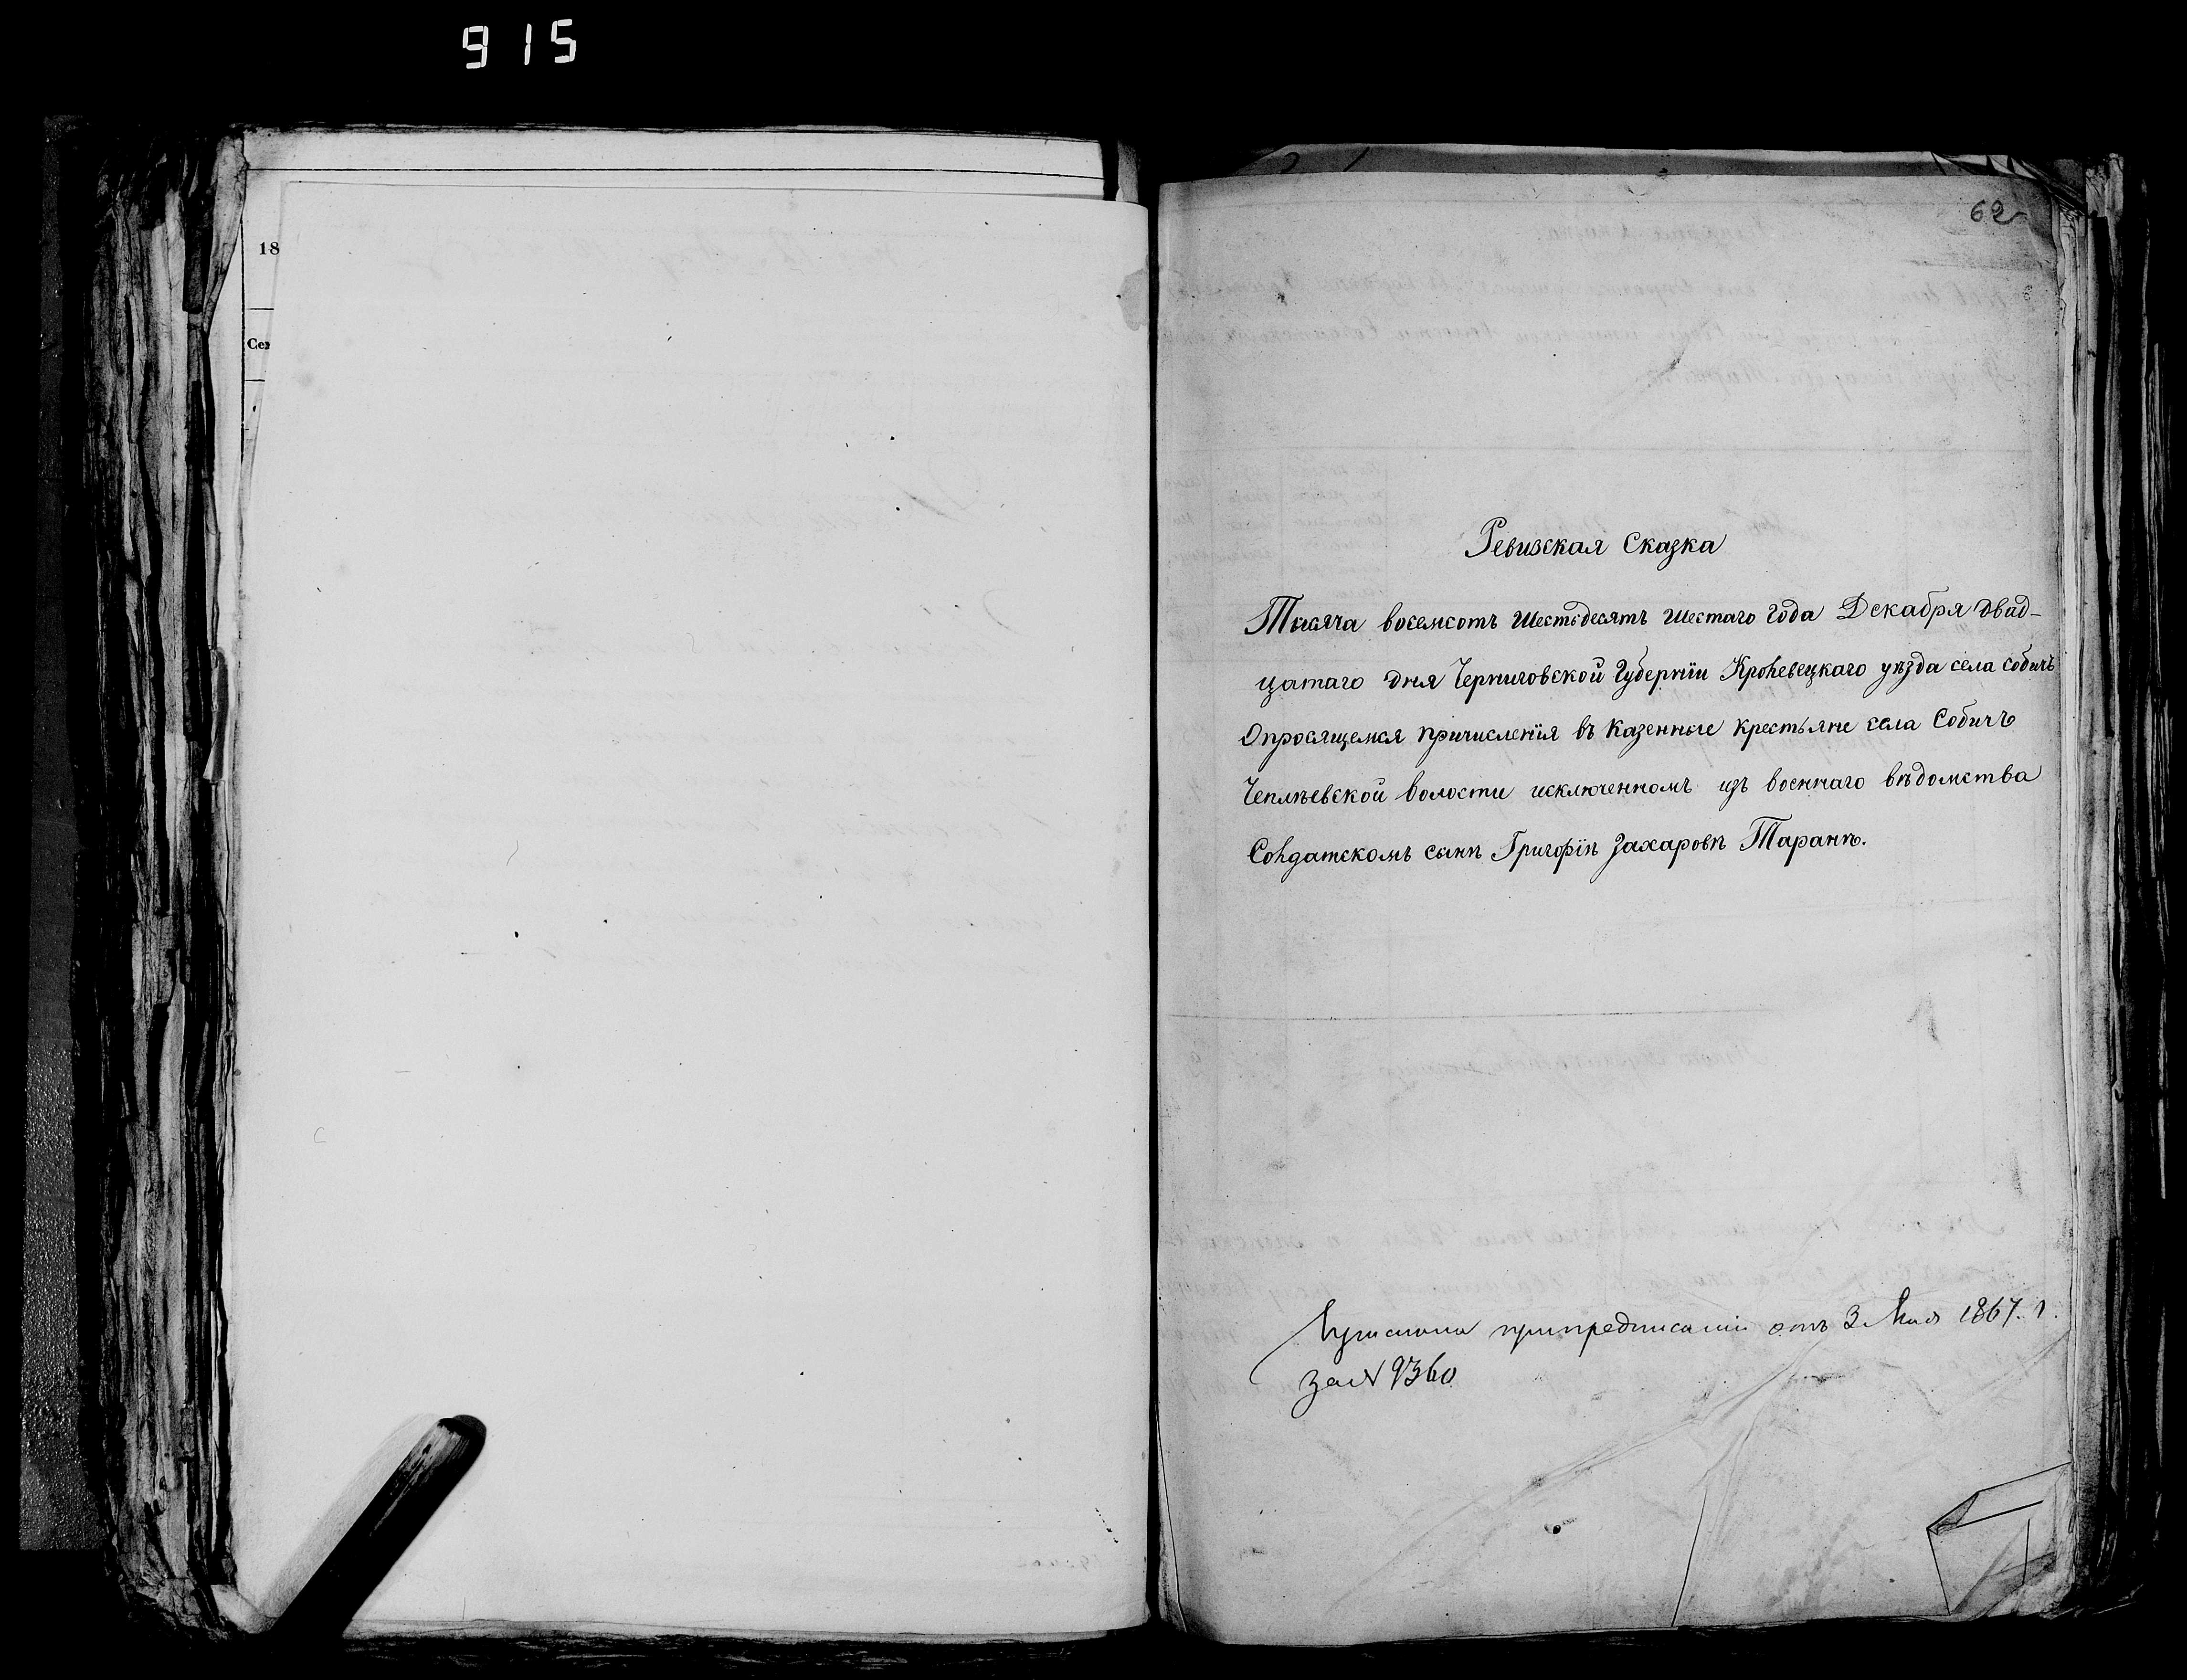 915
18
Сем
62
Ревизская Сказка
Тысяча восемсотъ шестьдесятъ шестаго года Декабря двад-
цатаго дня Черниговской Губерніи Кролевецкаго уѣзда села Собичъ
Опросящемся причисленія въ казенные крестьяне села Собичъ
Чеплѣевской волости исключенномъ изъ военнаго вѣдомства
Солдатскомъ сынѣ Григоріѣ Захаровѣ Таранѣ.
припредписаніи отъ 3 Мая 1867. г.
за № 9360